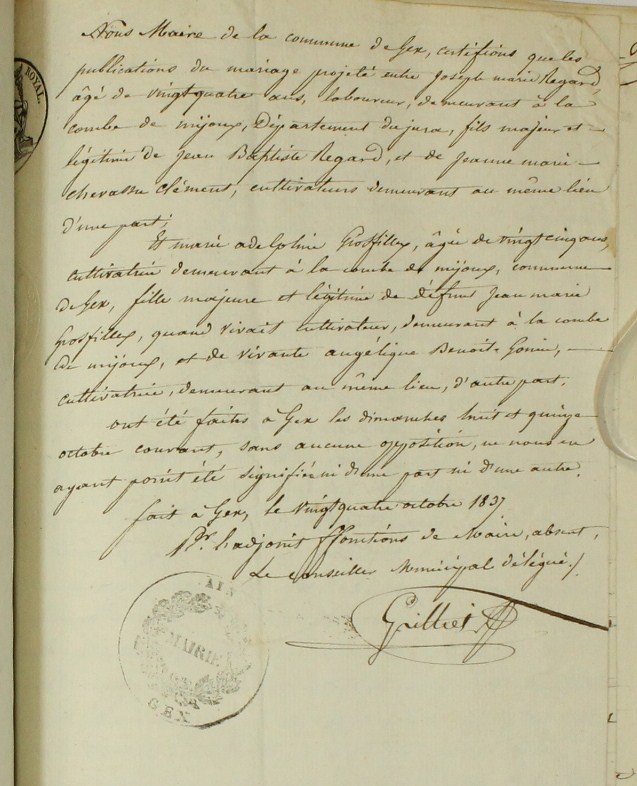 Nous Maire de la commune de Gex, certifions que les
publications du mariage projeté entre Joseph marie Regard,
âgé de vingtquatre ans, laboureur, demeurant à la
combe de mijoux, Département du jura, fils majeur et
légitime de Jean Baptiste Regard, et de jeanne marie
chevassu Clément, cultivateurs demeurant au même lieu
d'une part;
Et marie adelphine Grosfilley, âgée de vingt cinq ans,
cultivatrice demeurant à la combe de mijoux, commune
de Gex, fille majeure et légitime de défunt Jean marie
Grosfilley, quand vivait cultivateur, demeurant à la combe
de mijoux, et de vivante angélique Benoit-Gonin,
cultivatrice, demeurant au même lieu, d'autre part.
ont été faites à Gex les dimanches huit et quinze
octobre courant, sans aucune opposition, ne nous en
ayant point été signifiée ni d'une part ni d'une autre.
fait à Gex, le vingtquatre octobre 1837
Pr. l'adjoint ffonctions de Maire, absent,
Le conseiller Municipal délégué./
Grilliet
ROYAL.
AIN
MAIRIE
GEX